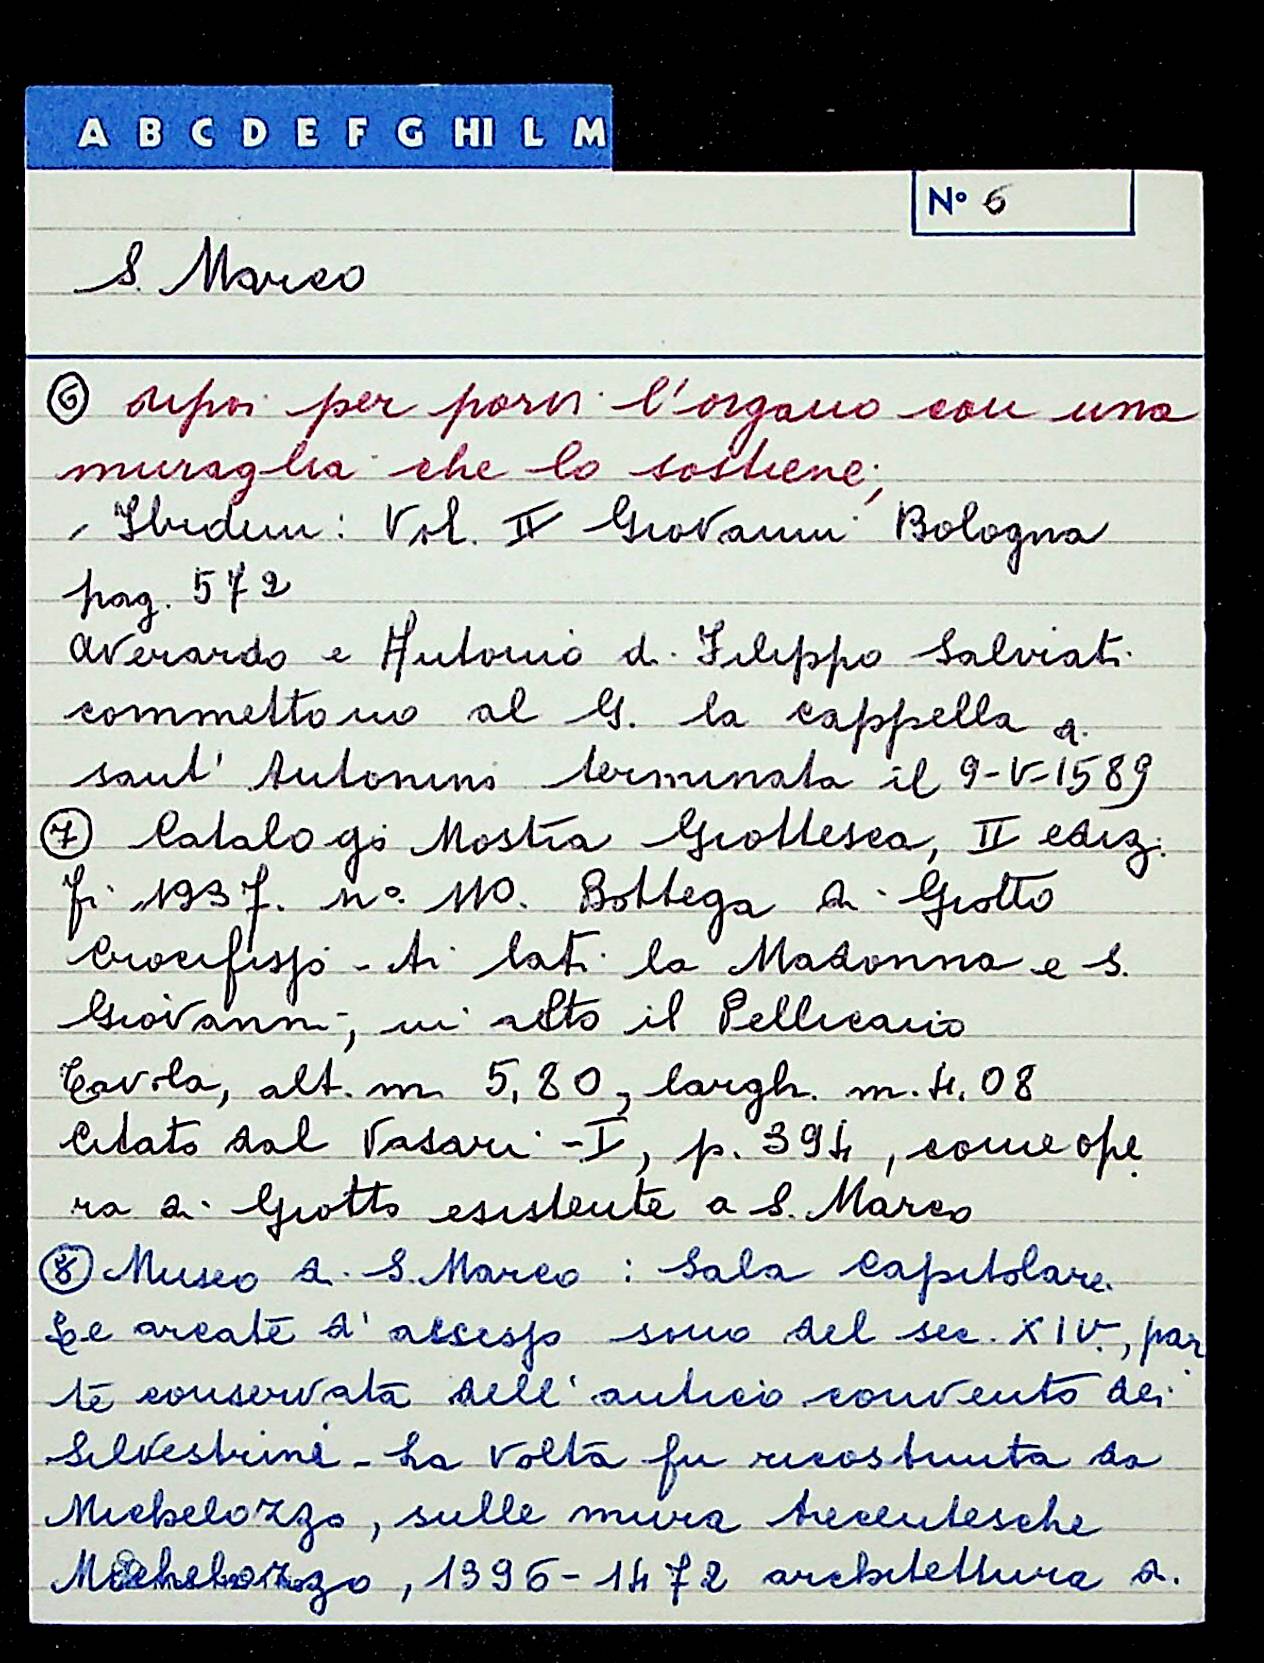 A B C D E F G HI L M
N° 6
S. Marco
⑥ dipoi per porvi l'organo con una
muraglia che lo sostiene;
, Ibidem: Vol. II Giovanni Bologna
pag. 572
Averardo e Antonio di Filippo Salviati
commettono al G. la cappella di
sant' Antonino terminata il 9-V-1589
⑦ Catalogo Mostra Giottesca, II ediz.
Fi 1937. n°. 110. Bottega di Giotto
Crocifisso - Ai lati la Madonna e S.
Giovanni, in alto il Pellicano
Tavola, alt. m. 5,80, largh. m. 4.08
Citato dal Vasari - I, p. 394, come ope
ra di Giotto esistente a S. Marco
⑧ Museo di S. Marco : Sala Capitolare.
Le arcate d' accesso sono del sec. XIV., par
te conservata dell' antico convento dei
Silvestrini - La volta fu ricostruita da
Michelozzo, sulle mura trecentesche
Michelozzo, 1396-1472 architettura di.